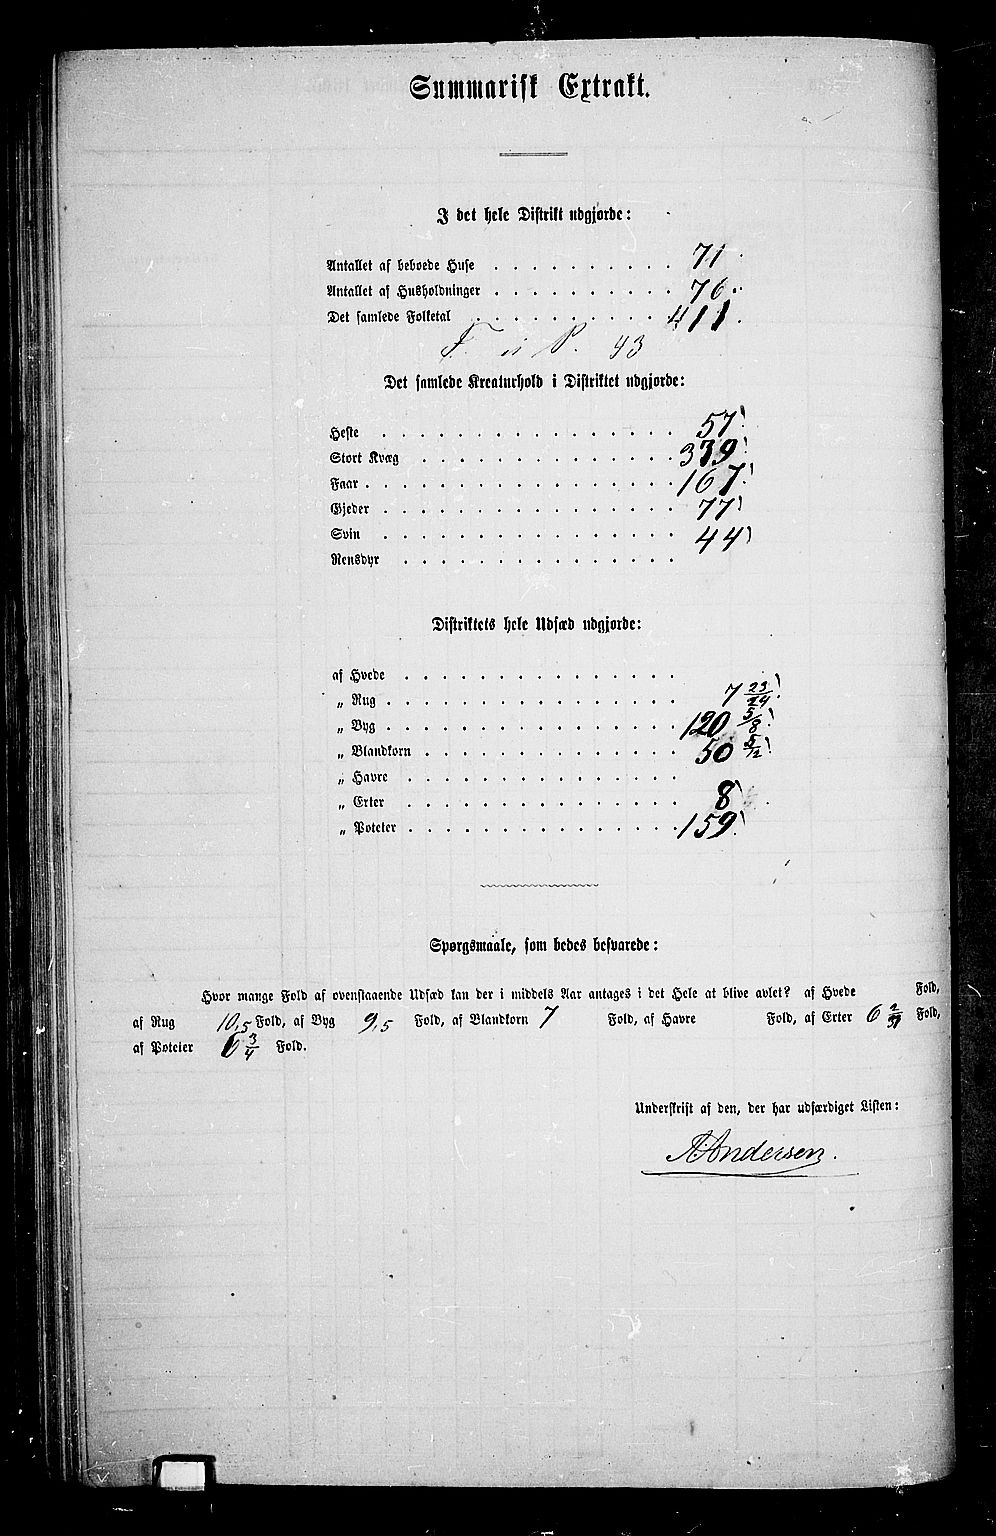 Summarisk Extrakt.
I det hele Distrikt udgjorde:
Antallet af beboede Huse . . . . . . . . . . 71
Antallet af Husholdninger . . . . . . . . . . 76
Det samlede Folketal . . . . . . . . . . . 411
F. ei P. 43
Det samlede Kreaturhold i Distriktet udgjorde:
Heste . . . . . . . . . . . . . . . . 57
Stort Kvæg . . . . . . . . . . . . . . 339
Faar . . . . . . . . . . . . . . . . . 167
Gjeder . . . . . . . . . . . . . . . . 77
Svin . . . . . . . . . . . . . . . . 44
Rensdyr . . . . . . . . . . . . . . .
Distriktets hele Udsæd udgjorde:
af Hvede . . . . . . . . . . . . . . .
„ Rug . . . . . . . . . . . . . . . . 7 23/24
„ Byg . . . . . . . . . . . . . . . . 120 5/8
„ Blandkorn . . . . . . . . . . . . . . 50 5/12
„ Havre . . . . . . . . . . . . . . .
„ Erter . . . . . . . . . . . . . . . 8
„ Poteter . . . . . . . . . . . . . . . 159
Spørgsmaale, som bedes besvarede:
Hvor mange Fold af ovenstaaende Udsæd kan der i middels Aar antages i det Hele at blive avlet? af Hvede Fold,
af Rug 10,5 Fold, af Byg 9,5 Fold, af Blandkorn 7 Fold, af Havre Fold, af Erter 6 Fold,
af Poteter 6 3/4 Fold.
Underskrift af den, der har udfærdiget Listen:
A. Andersen.